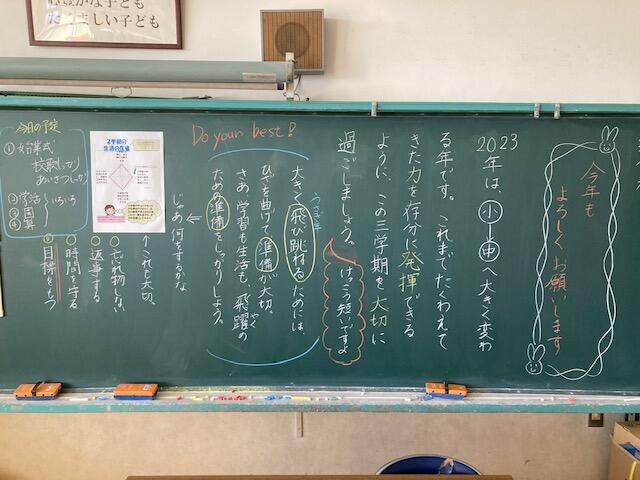 かな子ども
さしい子ども
今年も
よろしくお願いします
2023
年は、小→中へ大きく変わ
る年です。これまでたくわえて
きた力を存分に発揮できる
ように、この三学期を大切に
過ごしましょう。
けっこう短いですよ
Do your best!
うさぎ年
大きく飛び跳ねるためには、
ひざを曲げて、準備が大切。
さあ、学習も生活も、飛躍の
やく
ため準備をしっかりしよう。
じゃあ何をするかな
↑これも大切。
①忘れ物しない
②返事する
③時間を守る
④目標をもつ
3学期の
生活の反省
今日の予定
①始業式
校歌しっかり
あいさつしっかり
②学活 いろいろ
③国
④算